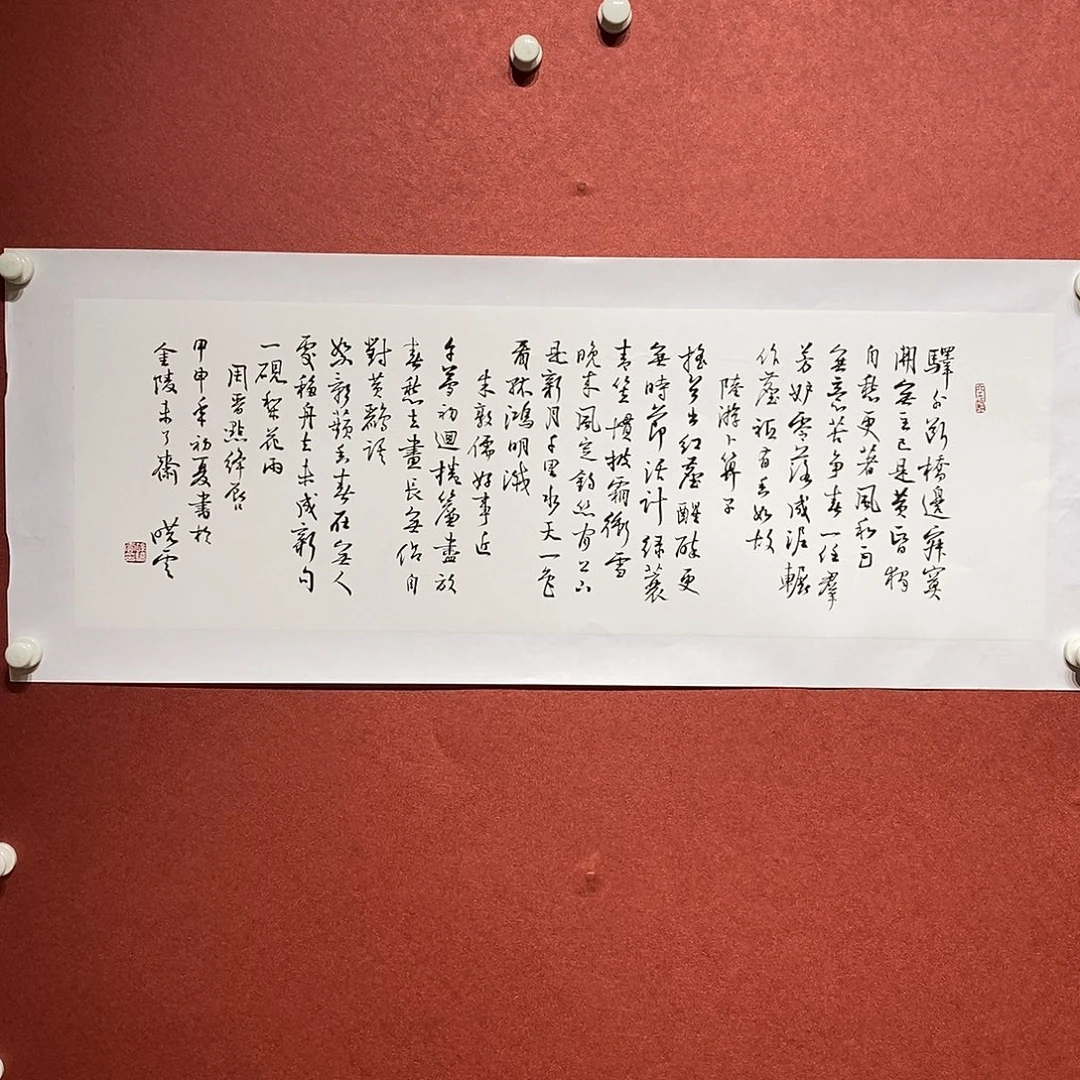 驛外斷橋邊寂寞
開無主已是黃昏獨
自愁更著風和雨
無意苦爭春一任羣
芳妒零落成泥輾
作塵祗有香如故
陸游卜算子
搖首出紅塵醒醉更
無時節活計綠蓑
青笠慣披霜衝雪
晚來風定釣絲閒上下
是新月千里水天一色
看孤鴻明滅
朱敦儒好事近
午夢初迴捲簾盡放
春愁去晝長無侶自
對黃鸝語
絮影蘋香春在無人
處移舟去未成新句
一硯梨花雨
周晋點絳唇
甲申年初夏書於
金陵未了齋 曉雲